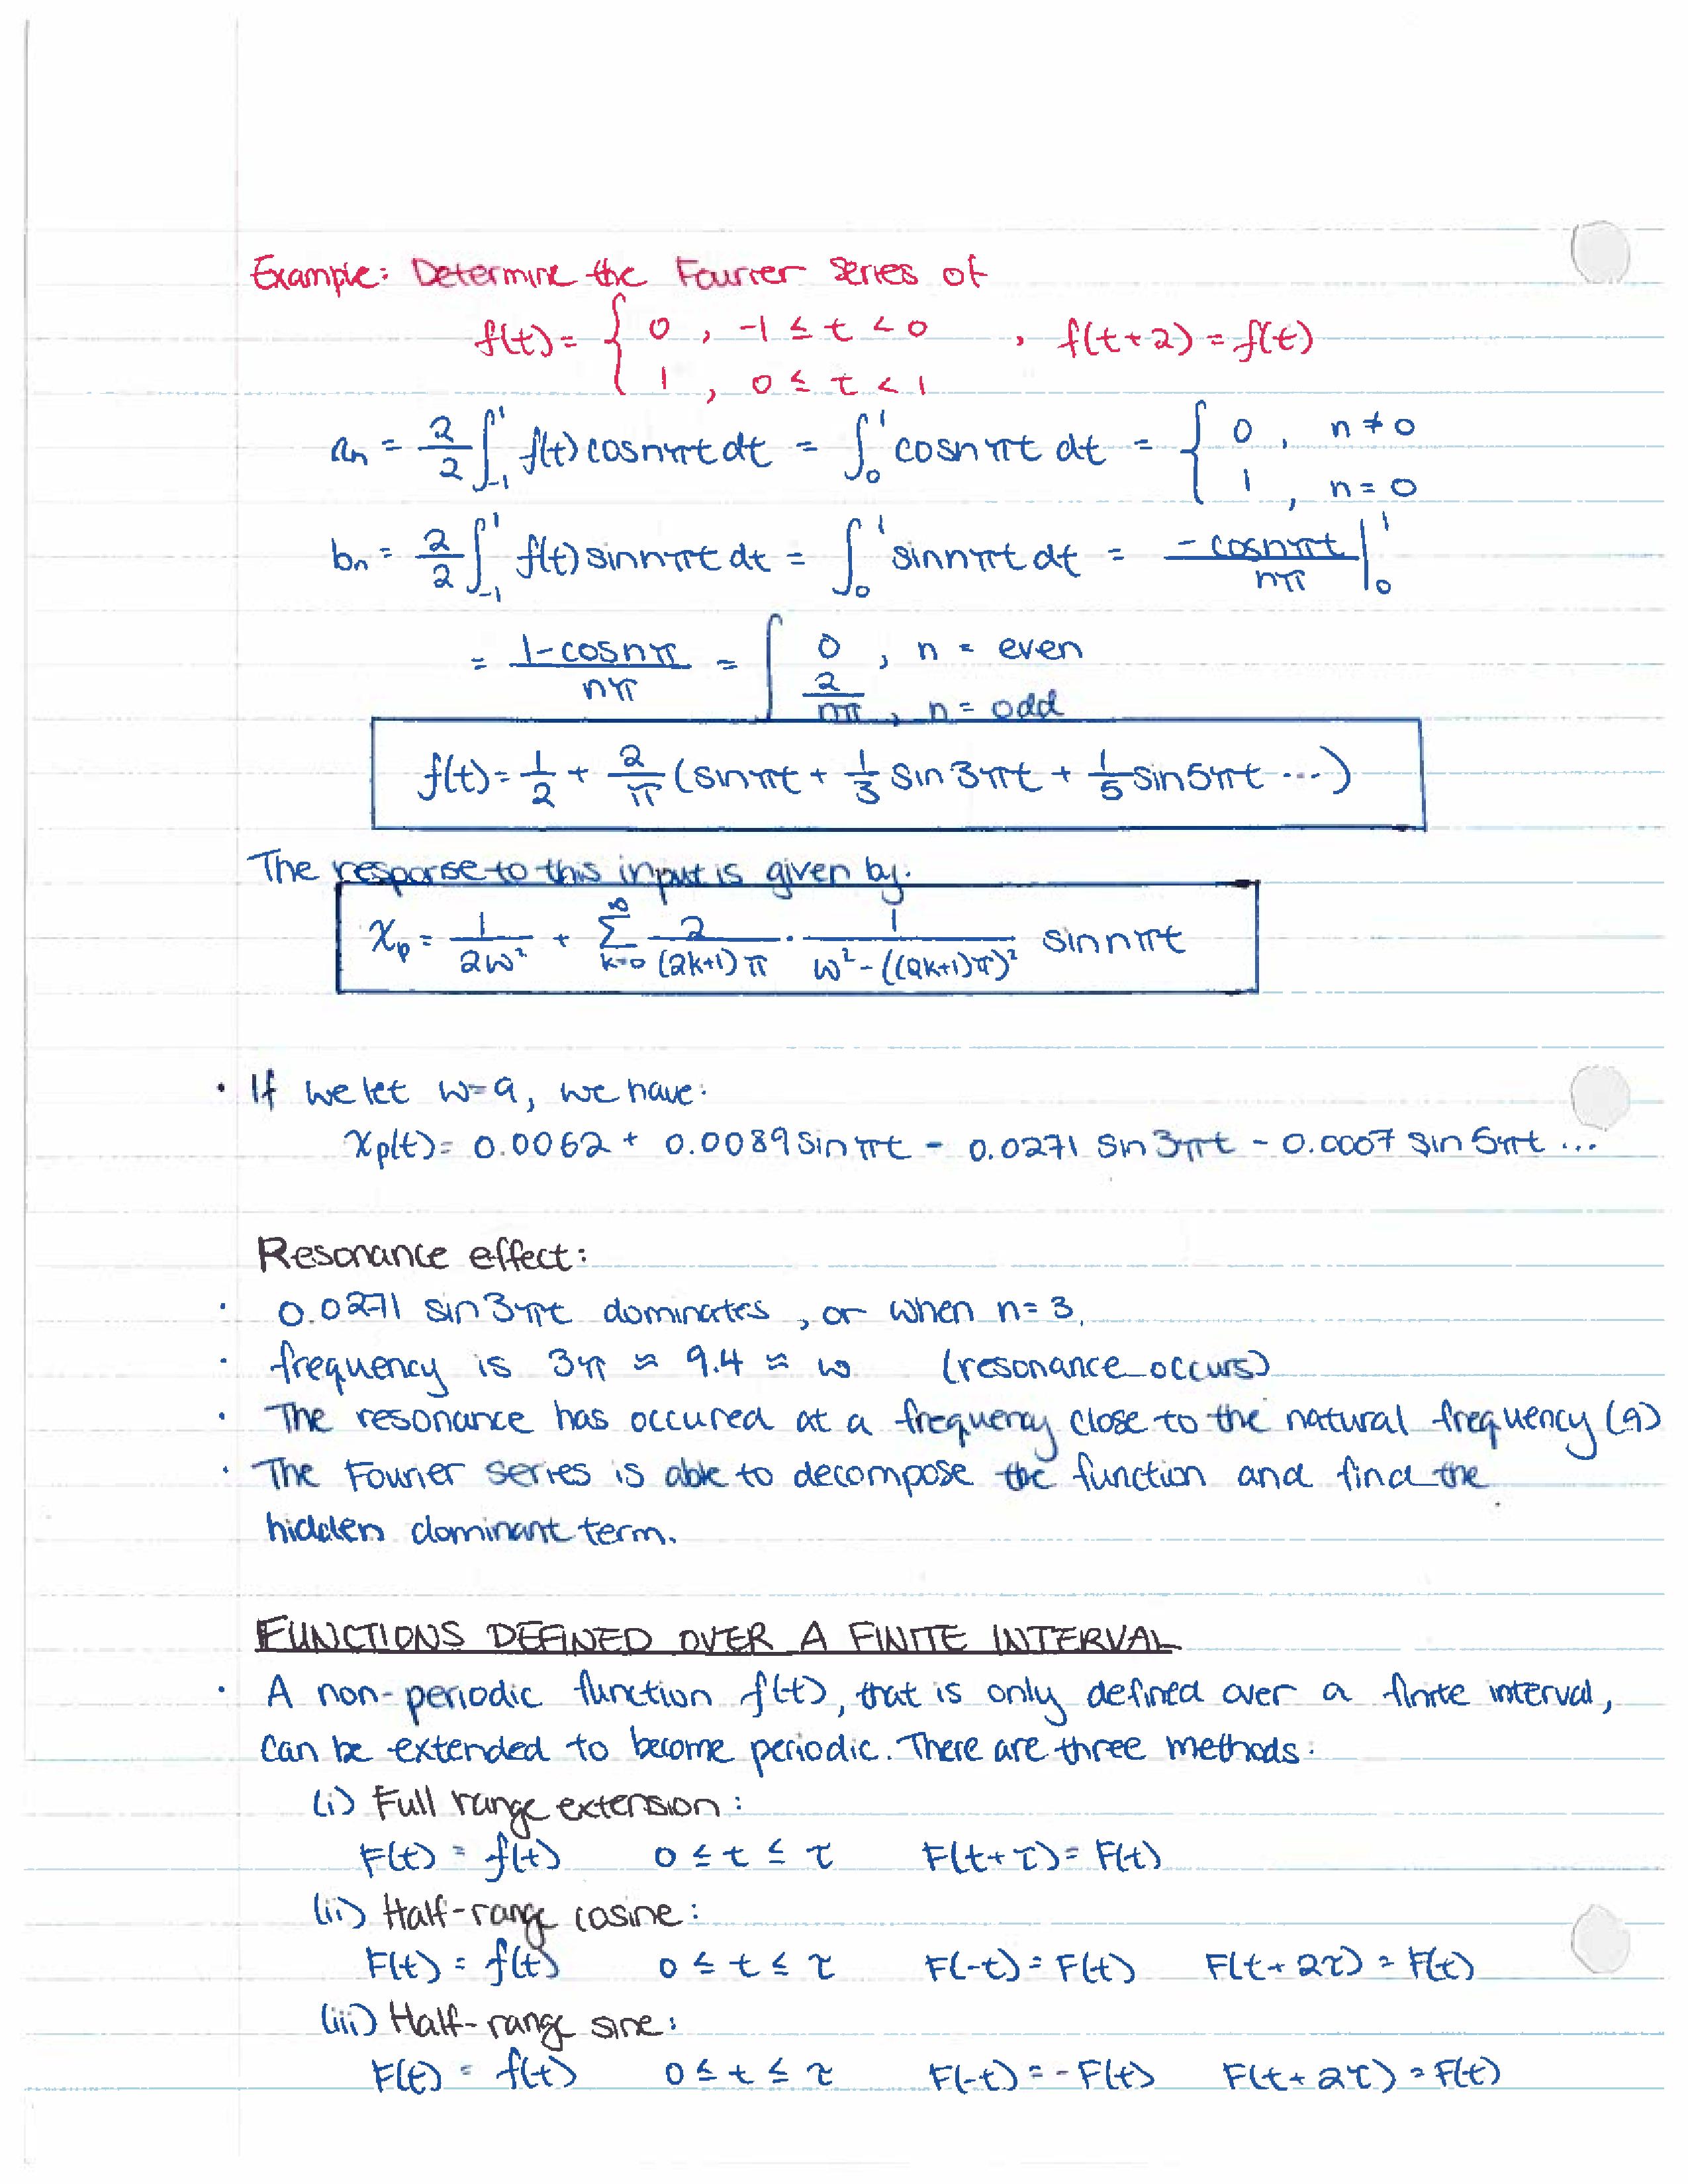 Example: Determine the Fourier Series of
f(t) = { 0 , -1 ≤ t < 0 , f(t+2) = f(t)
1 , 0 ≤ t < 1
an = 2/2 ∫_{-1}^{1} f(t) cosnπt dt = ∫_0^1 cosnπt dt = { 0 , n ≠ 0
1 , n = 0
bn = 2/2 ∫_{-1}^{1} f(t) sinnπt dt = ∫_0^1 sinnπt dt = -cosnπt/nπ |_0^1
= 1-cosnπ/nπ = { 0 , n = even
2/nπ , n = odd
f(t) = 1/2 + 2/π (sinπt + 1/3 sin3πt + 1/5 sin5πt ...)
The response to this input is given by:
xp = 1/2ω² + Σ_{k=0}^{∞} 2/(2k+1)π · 1/ω²-((2k+1)π)² sinnπt
• If we let ω=9, we have:
xp(t) = 0.0062 + 0.0089 sinπt - 0.0271 sin3πt - 0.0007 sin5πt ...
Resonance effect:
• 0.0271 sin3πt dominates, or when n=3.
• frequency is 3π ≈ 9.4 ≈ ω (resonance occurs)
• The resonance has occured at a frequency close to the natural frequency (9)
• The Fourier series is able to decompose the function and find the
hidden dominant term.
FUNCTIONS DEFINED OVER A FINITE INTERVAL
• A non-periodic function f(t), that is only defined over a finite interval,
can be extended to become periodic. There are three methods:
(i) Full range extension:
F(t) = f(t) 0 ≤ t ≤ τ F(t+τ) = F(t)
(ii) Half-range cosine:
F(t) = f(t) 0 ≤ t ≤ τ F(-t) = F(t) F(t+2τ) = F(t)
(iii) Half-range sine:
F(t) = f(t) 0 ≤ t ≤ τ F(-t) = -F(t) F(t+2τ) = F(t)